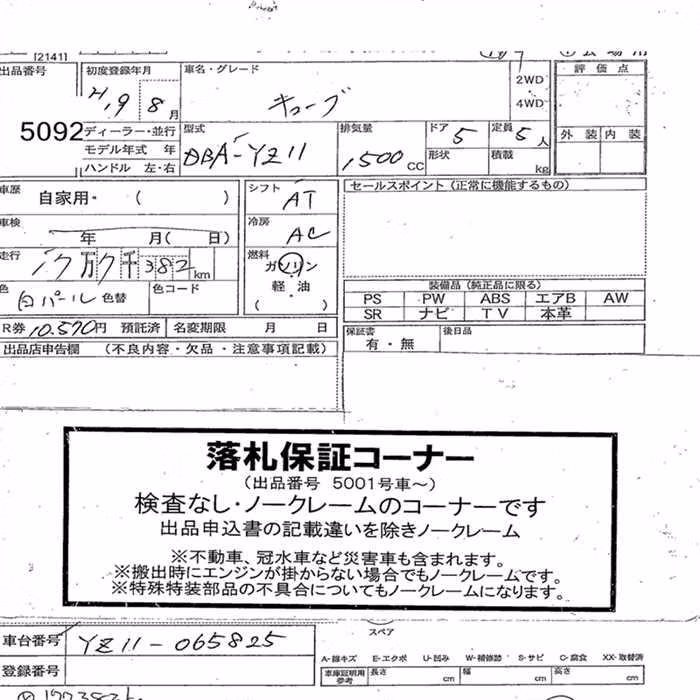 [2141]
出品番号 初度登録年月 車名・グレード 2WD 評価点
21, 9 8月 キューブ 4WD
5092 ディーラー・並行 型式 排気量 ドア 5 定員 5人 外装 内装
モデル年式 年 DBA-YZ11 1500cc 形状 積載 kg
ハンドル 左・右
車歴 自家用・( ) シフト AT セールスポイント(正常に機能するもの)
車検 年 月( 日) 冷房 AC
走行 万 千382km 燃料 ガソリン
色 白パール 色替 色コード 軽・油 装備品(純正品に限る)
( ) PS PW ABS エアB AW
SR ナビ TV 本革
R券 10.570円 預託済 名変期限 月 日 保証書 有・無 後日品
出品店申告欄 (不良内容・欠品・注意事項記載)
落札保証コーナー
(出品番号 5001号車~)
検査なし・ノークレームのコーナーです
出品申込書の記載違いを除きノークレーム
※不動車、冠水車など災害車も含まれます。
※搬出時にエンジンが掛からない場合でもノークレームです。
※特殊特装部品の不具合についてもノークレームになります。
車台番号 YZ11-065825 スペア
登録番号 A-線キズ E-エクボ U-凹み W-補修跡 S-サビ C-腐食 XX-取替済
車庫証明用参考 長さ cm 幅 cm 高さ cm